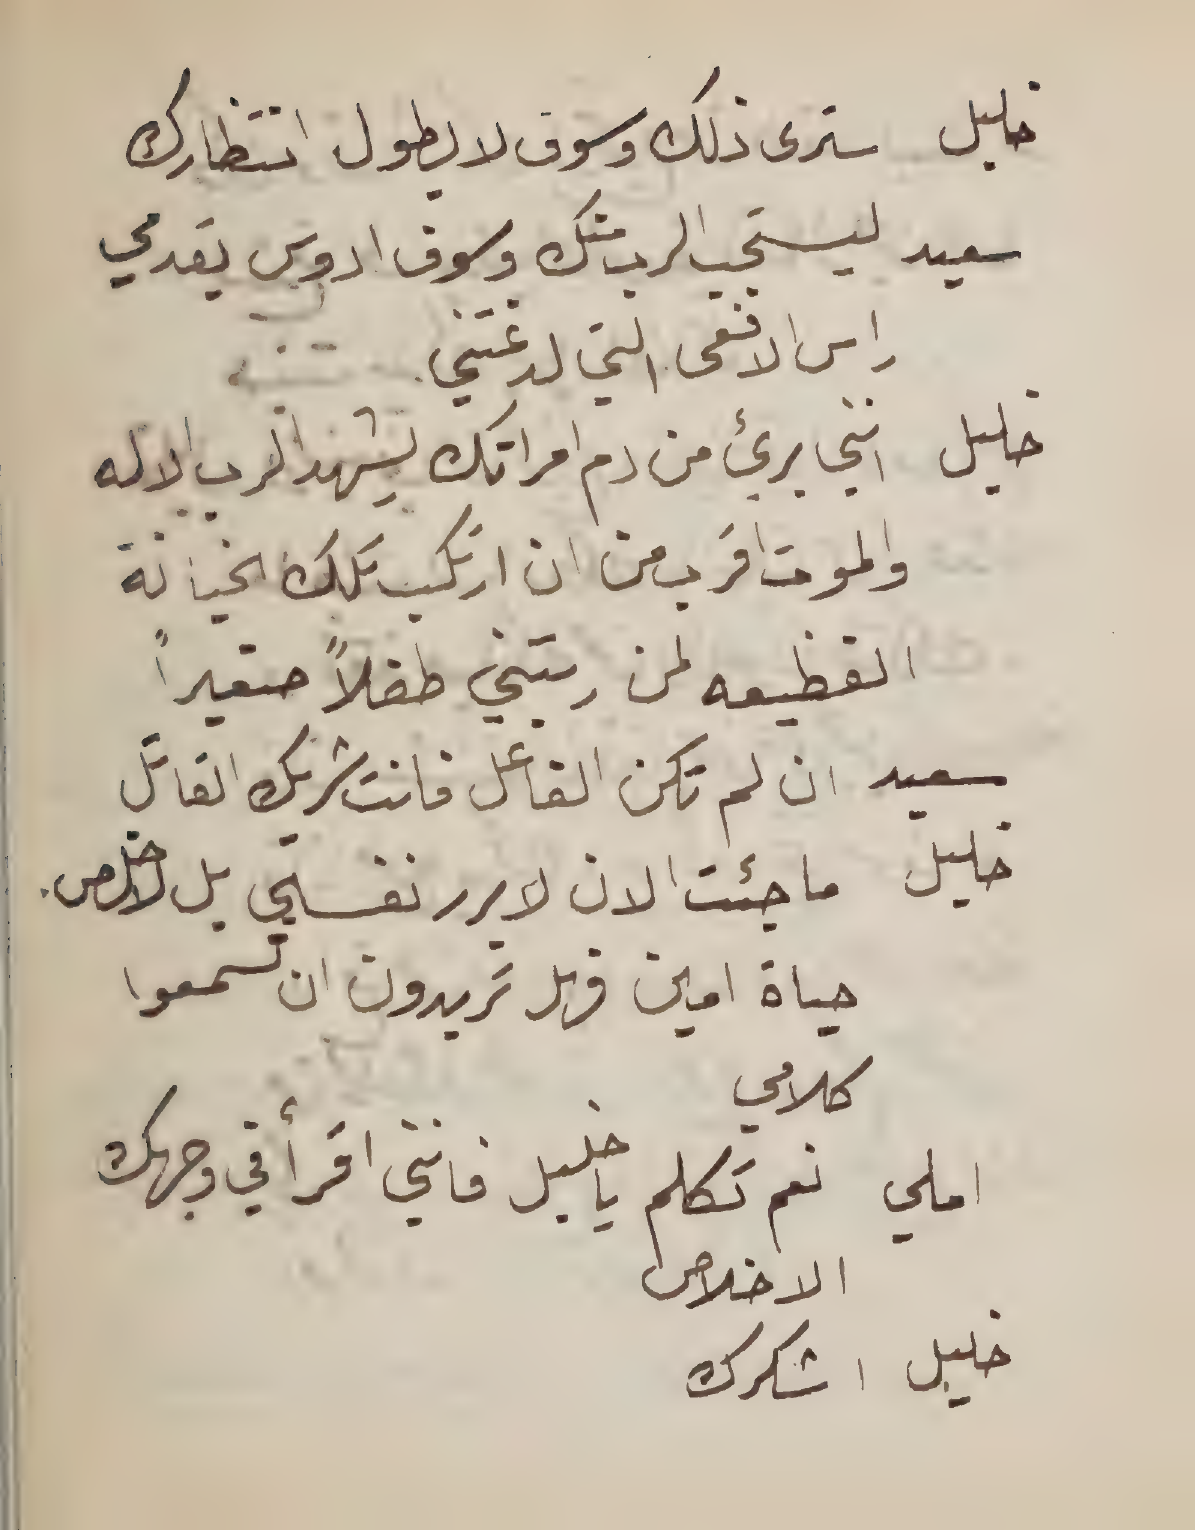 خليل سترى ذلك وسوف لا يطول انتظارك
سعيد ليستجيب الرب منك وسوف ادوس بقدمي
راس الافعى التي لدغتني
خليل انني بريئ من دم امراتك ليشهد الرب الاله
والموت اقرب من ان ارتكب تلك الخيانة
الفظيعه لمن ربتني طفلاً صغيراً
سعيد ان لم تكن الفاعل فانت شريك القاتل
خليل ما جئت الان لابرر نفسي بل لاخلص
حياة امين فهل تريدون ان تسمعوا
كلامي
املي نعم تكلم يا خليل فانني اقرأ في وجهك
الاخلاص
خليل اشكرك